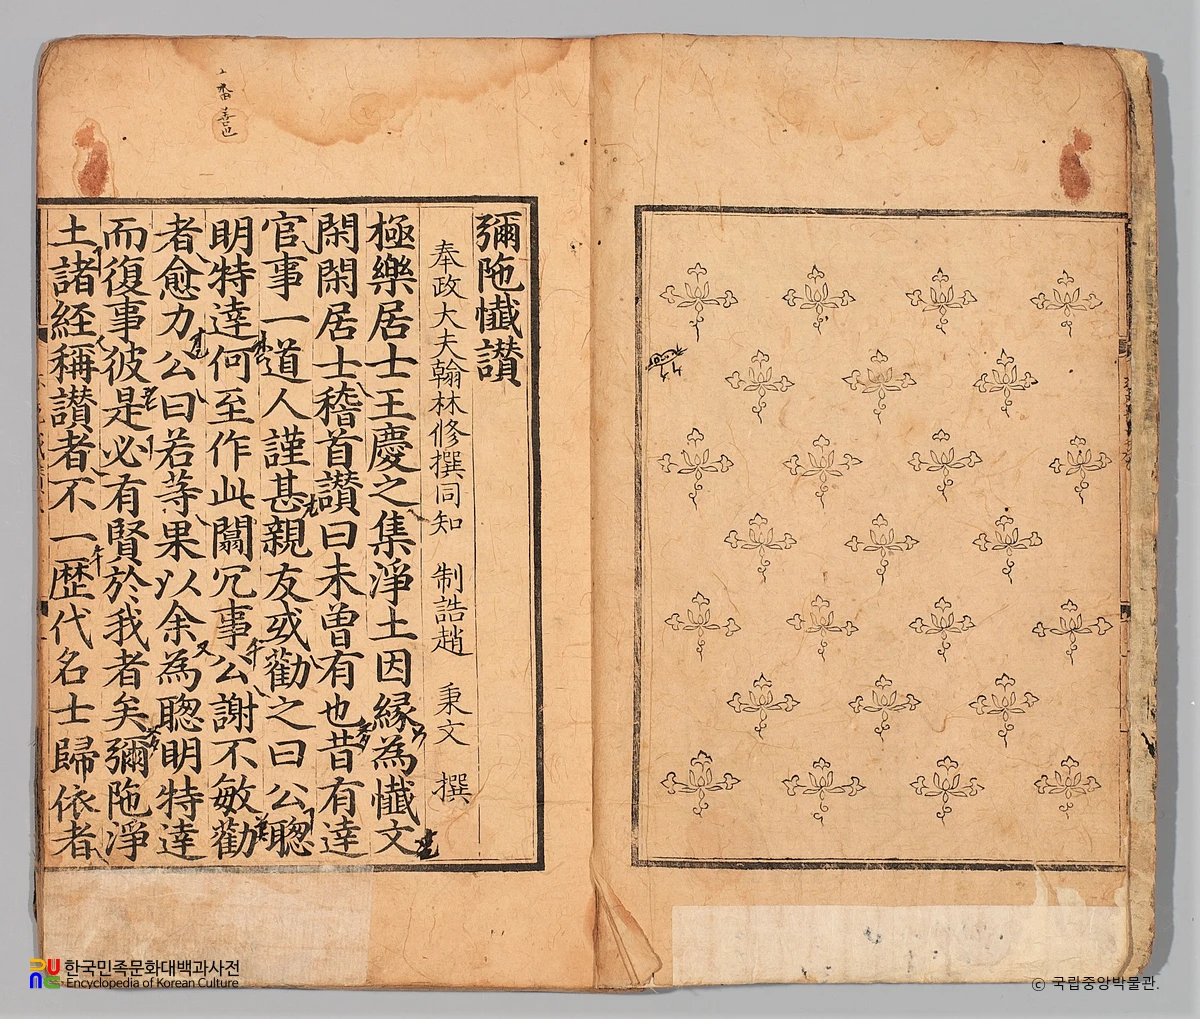 彌陁懺讃
奉政大夫翰林修撰同知 制誥趙 秉文 撰
極樂居士王慶之集淨土因縁為懺文
閑閑居士稽首讃曰未曽有也昔有達
官事一道人謹甚親友或勸之曰公聰
明特達何至作此闒冗事公謝不敏勸
者愈力公曰若等果以余為聰明特達
而復事彼是必有賢於我者矣彌陁淨
土諸経稱讃者不一歴代名士歸依者
한국민족문화대백과사전
Encyclopedia of Korean Culture
© 국립중앙박물관.